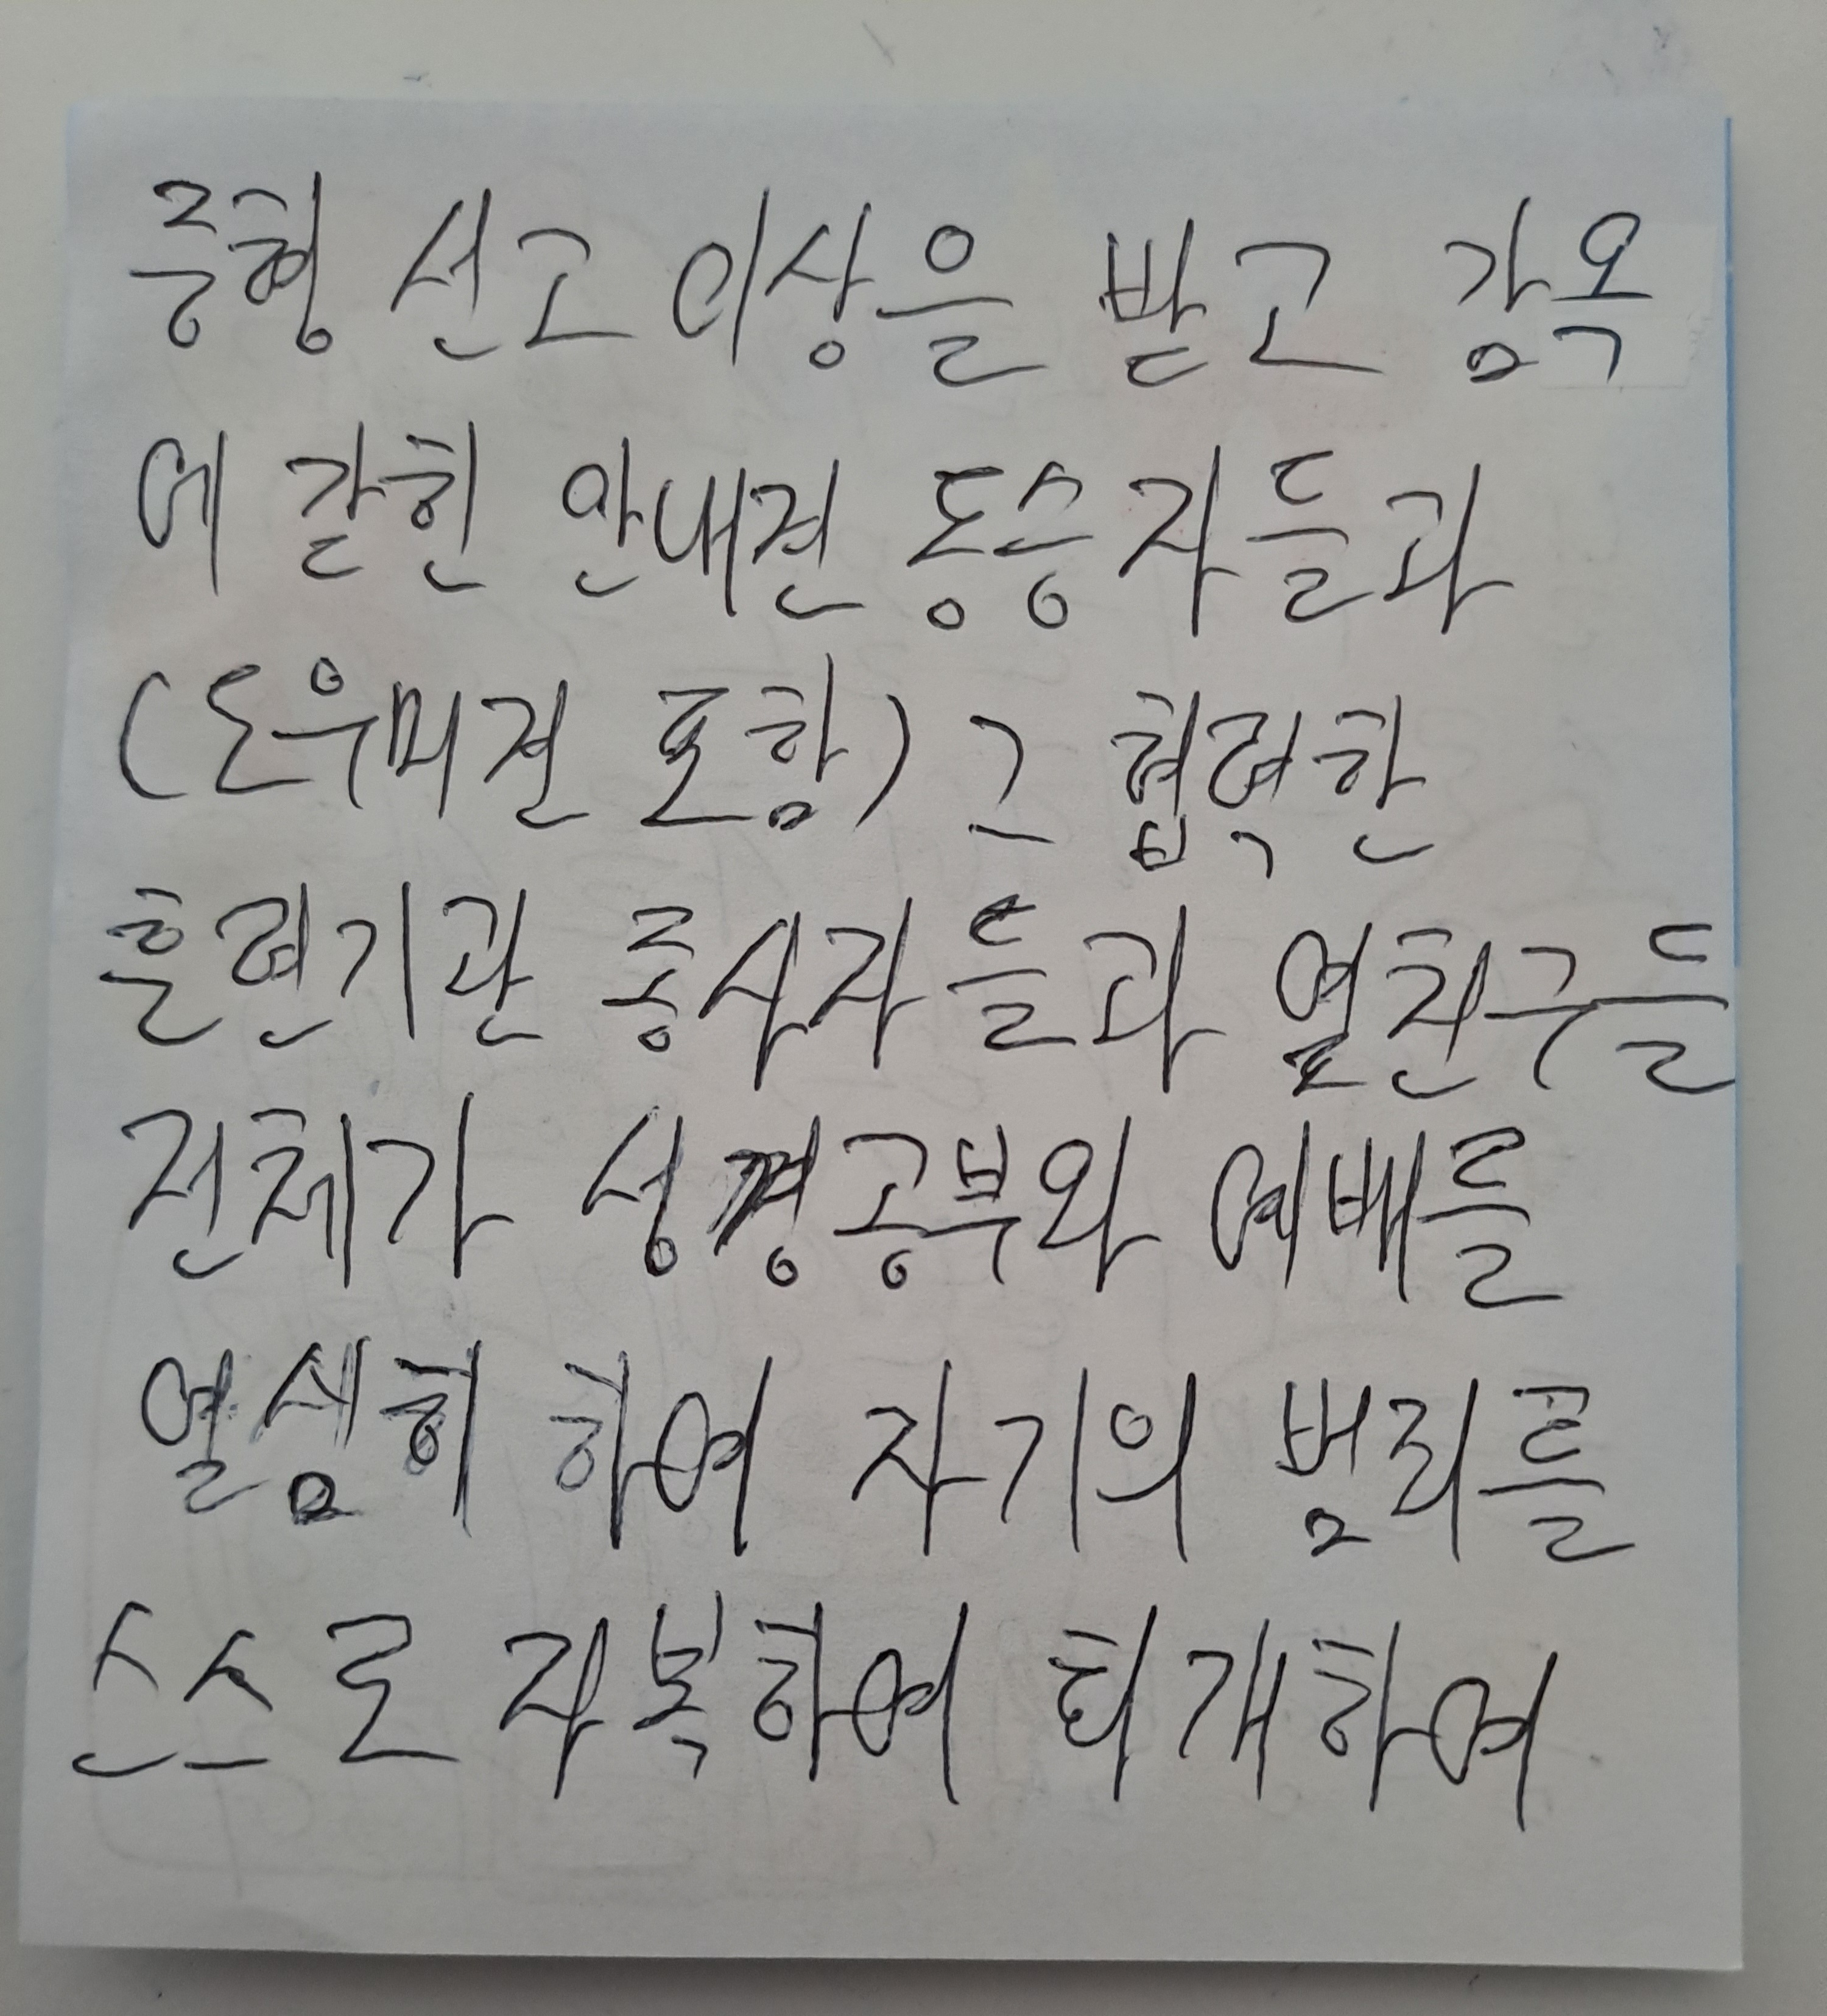 중형 선고 이상을 받고 감옥
에 갇힌 안내견 동승자들과
(도우미견 포함) 그 협력한
훈련기관 종사자들과 열친구들
전체가 성경공부와 예배를
열심히 하여 자기의 범죄를
스스로 자복하여 회개하여